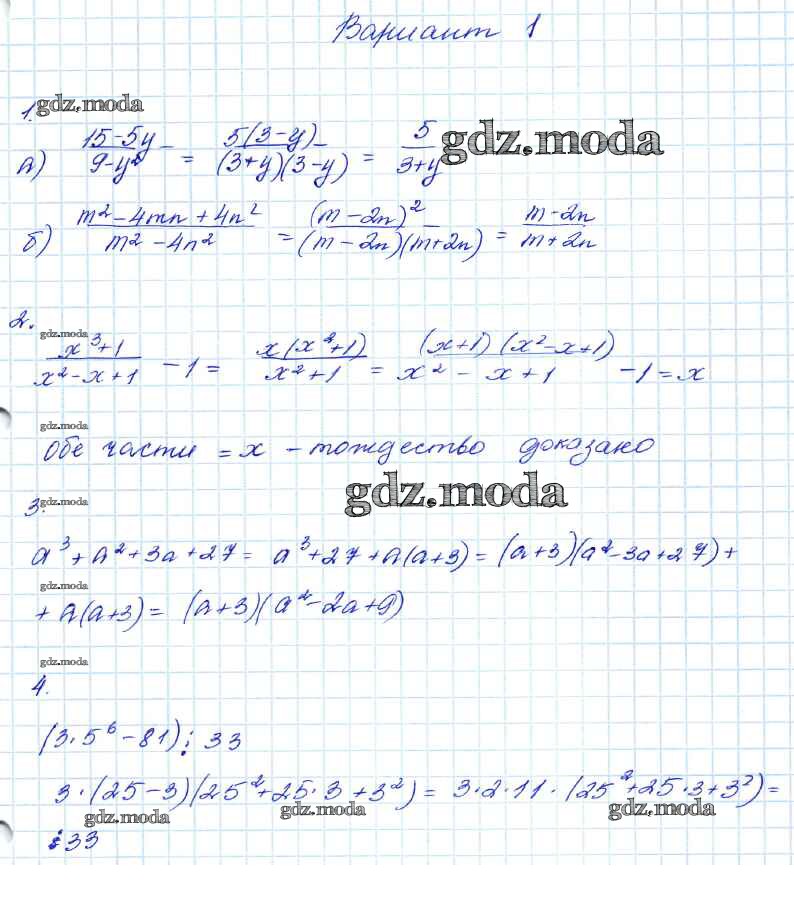 Вариант 1
1. gdz.moda
а) (15-5y)/(9-y²) = 5(3-y)/((3+y)(3-y)) = 5/(3+y) gdz.moda
б) (m²-4mn+4n²)/(m²-4n²) = (m-2n)²/((m-2n)(m+2n)) = (m-2n)/(m+2n)
2. gdz.moda
(x³+1)/(x²-x+1) -1 = x(x²+1)/(x²+1) = (x+1)(x²-x+1)/(x²-x+1) -1 = x
gdz.moda
Обе части = x - тождество доказано
3. gdz.moda gdz.moda
a³+a²+3a+27 = a³+27+a(a+3) = (a+3)(a²-3a+27)+
gdz.moda
+a(a+3) = (a+3)(a²-2a+9)
gdz.moda
4.
(3·5⁶-81)⋮33
3·(25-3)(25²+25·3+3²) = 3·2·11·(25²+25·3+3²) =
gdz.moda gdz.moda gdz.moda
⋮33